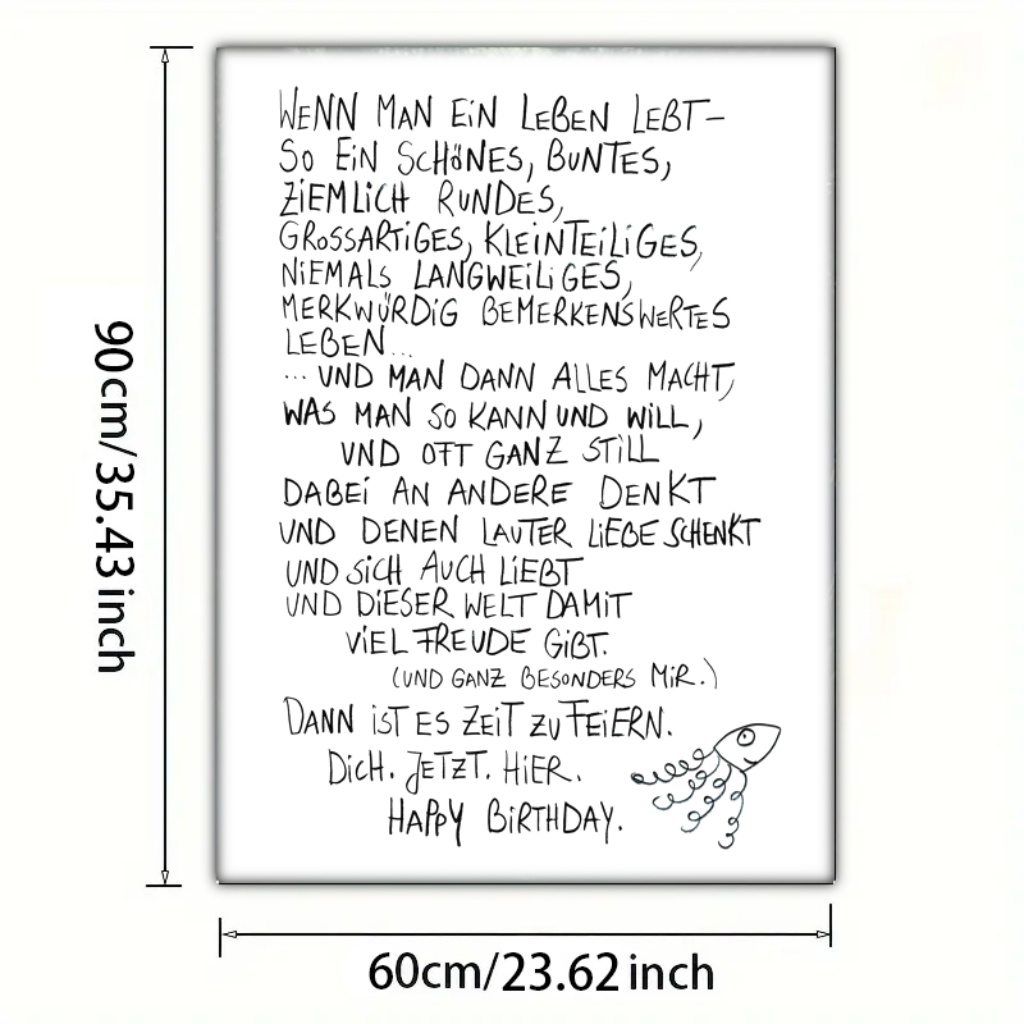 WENN MAN EIN LEBEN LEBT–
SO EIN SCHÖNES, BUNTES,
ZIEMLICH RUNDES,
GROSSARTIGES, KLEINTEILIGES,
NIEMALS LANGWEILIGES,
MERKWÜRDIG BEMERKENSWERTES
LEBEN...
...UND MAN DANN ALLES MACHT,
WAS MAN SO KANN UND WILL,
UND OFT GANZ STILL
DABEI AN ANDERE DENKT
UND DENEN LAUTER LIEBE SCHENKT
UND SICH AUCH LIEBT
UND DIESER WELT DAMIT
VIEL FREUDE GIBT.
(UND GANZ BESONDERS MIR.)
DANN IST ES ZEIT ZU FEIERN.
DICH. JETZT. HIER.
HAPPY BIRTHDAY.
90cm/35.43 inch
60cm/23.62 inch